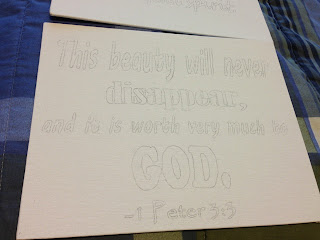 spirit
This beauty will never
disappear,
and it is worth very much to
GOD.
-1 Peter 3:3